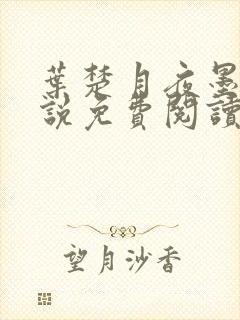 葉楚月夜墨
說免費閱讀
望月沙香